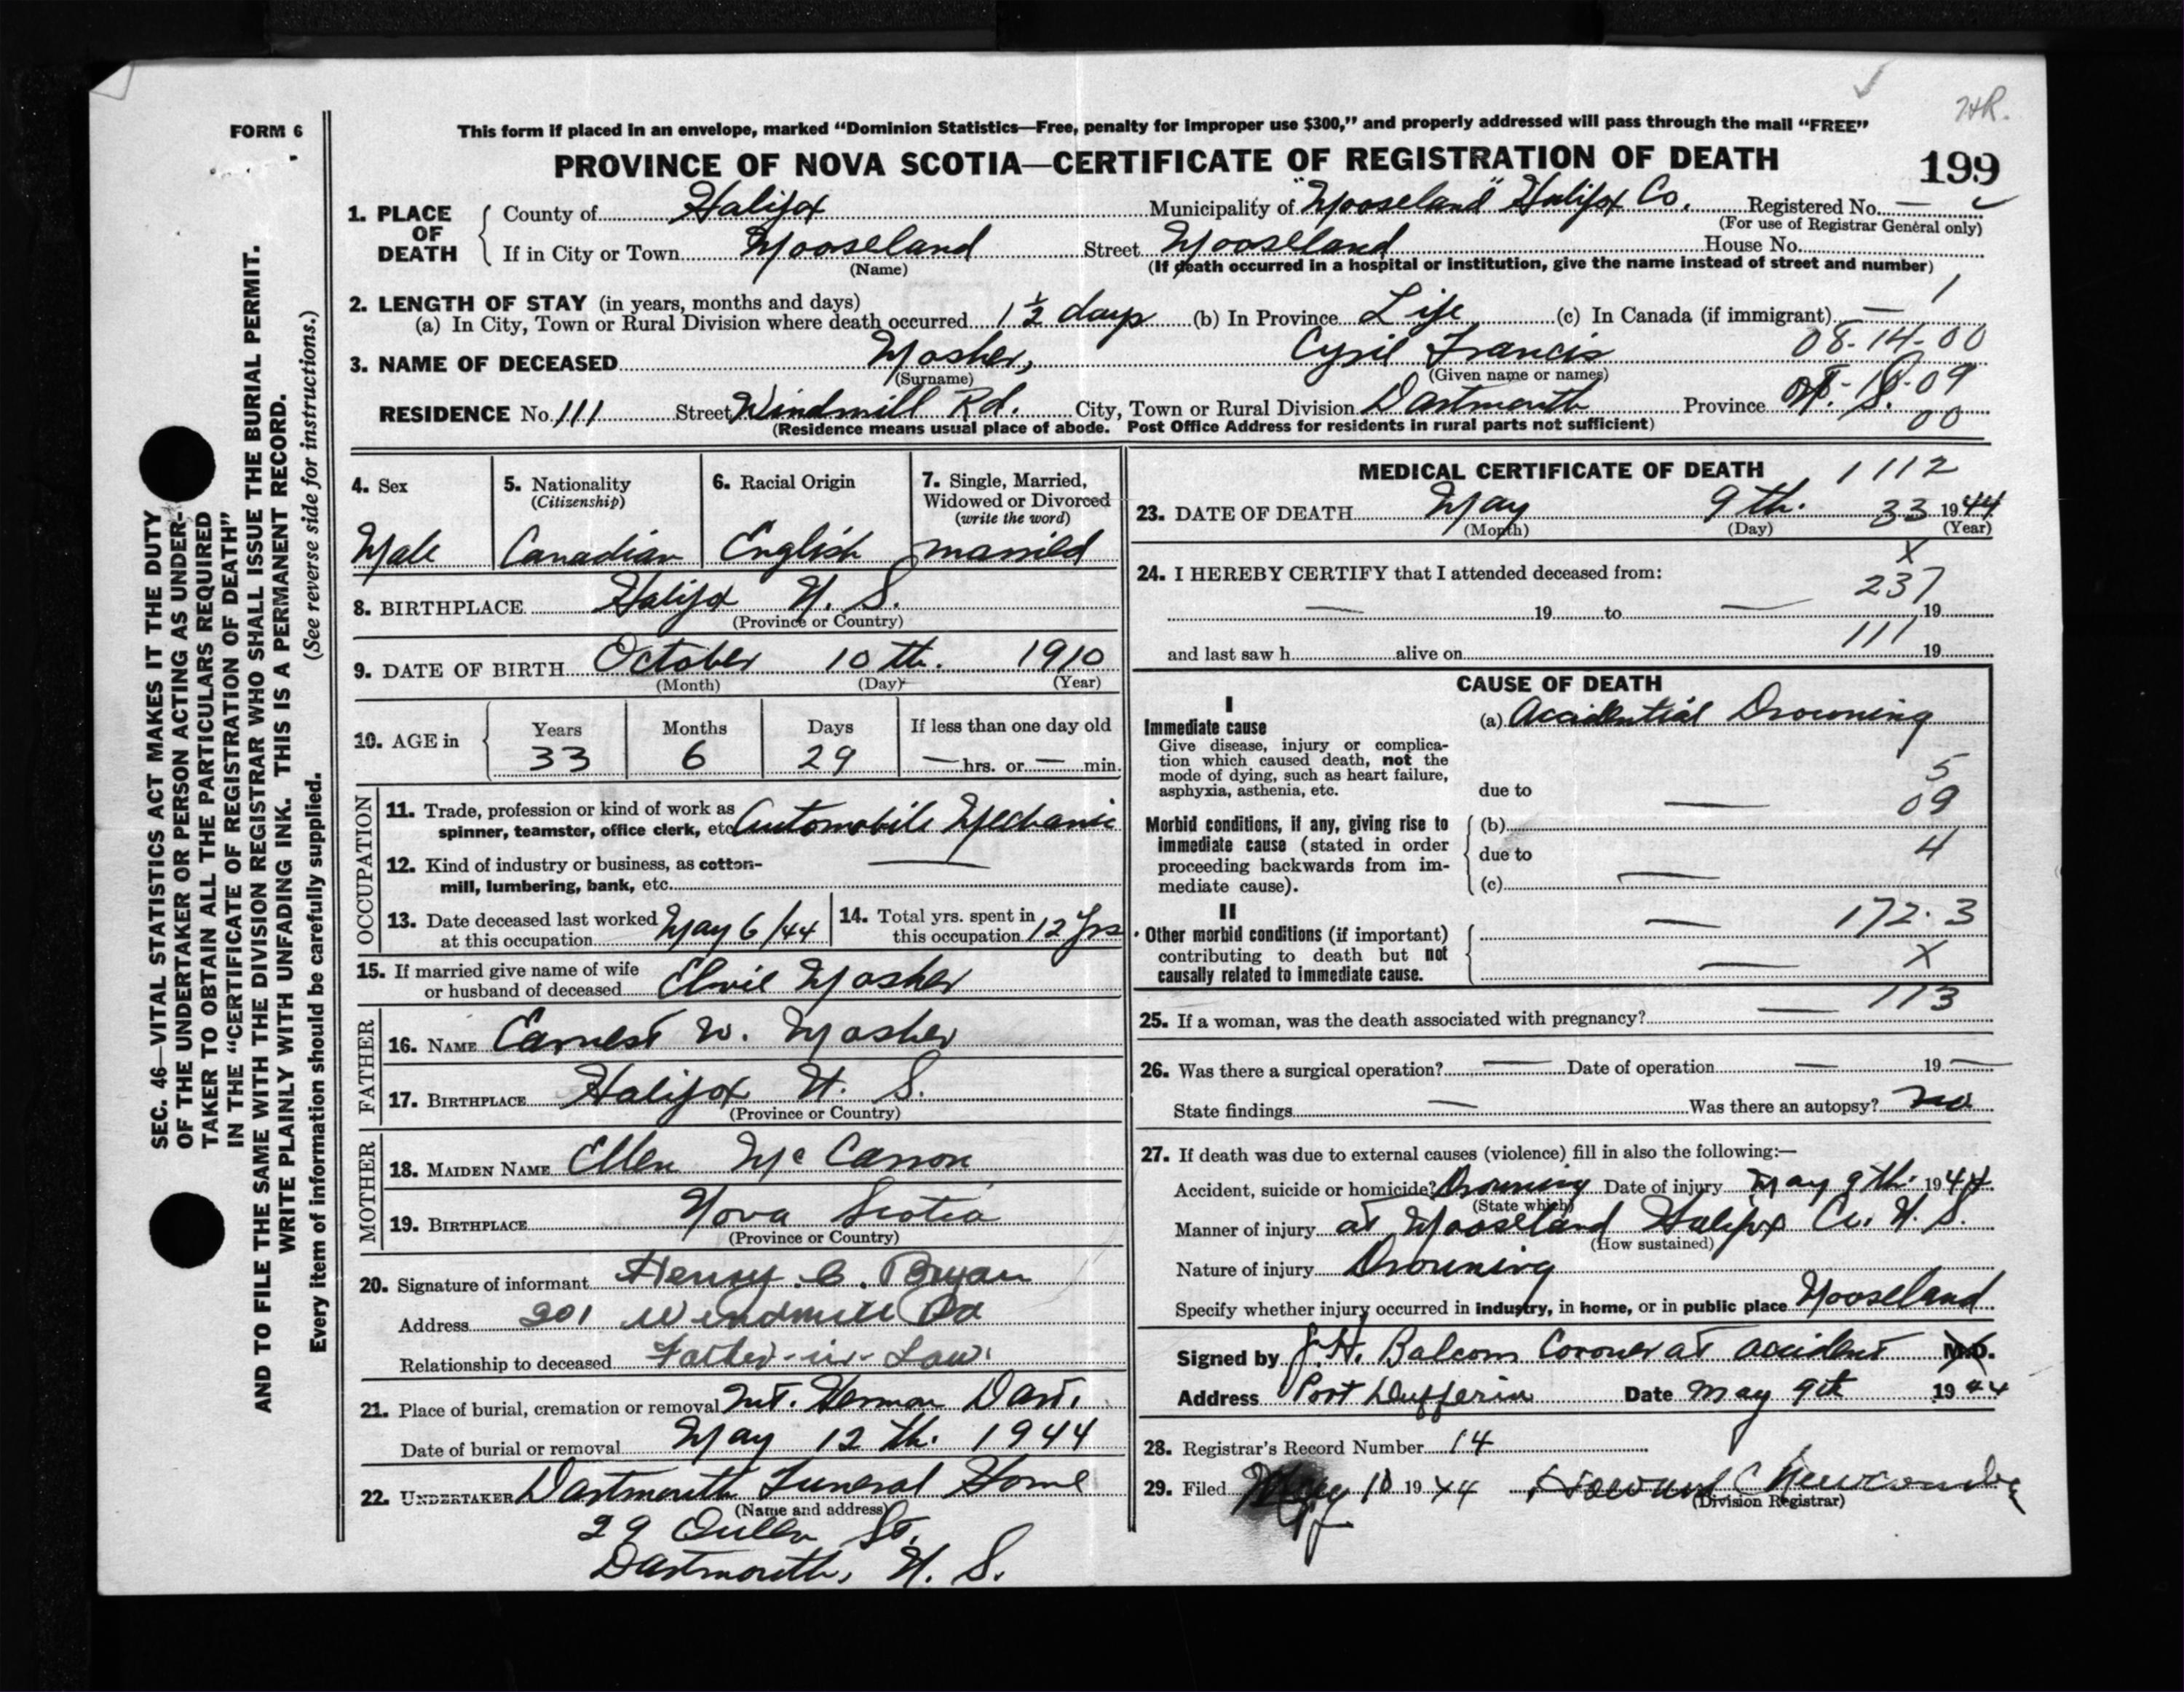 HR.
FORM 6
This form if placed in an envelope, marked "Dominion Statistics—Free, penalty for improper use $300," and properly addressed will pass through the mail "FREE"
PROVINCE OF NOVA SCOTIA—CERTIFICATE OF REGISTRATION OF DEATH
199
1. PLACE OF DEATH
County of Halifax Municipality of "Mooseland" Halifax Co. Registered No. —
(For use of Registrar General only)
If in City or Town Mooseland Street Mooseland House No.
(Name) (If death occurred in a hospital or institution, give the name instead of street and number)
2. LENGTH OF STAY (in years, months and days) 1
(a) In City, Town or Rural Division where death occurred 1 ½ days (b) In Province Life (c) In Canada (if immigrant) —
08-14-00
3. NAME OF DECEASED Mosher, Cyril Francis
(Surname) (Given name or names)
RESIDENCE No. 111 Street Windmill Rd. City, Town or Rural Division Dartmouth Province N. S.
(Residence means usual place of abode. Post Office Address for residents in rural parts not sufficient) 00
4. Sex
Male
5. Nationality
(Citizenship)
Canadian
6. Racial Origin
English
7. Single, Married,
Widowed or Divorced
(write the word)
married
8. BIRTHPLACE Halifax N. S.
(Province or Country)
9. DATE OF BIRTH October 10 th. 1910
(Month) (Day) (Year)
10. AGE in
Years Months Days If less than one day old
33 6 29 — hrs. or — min.
OCCUPATION
11. Trade, profession or kind of work as
spinner, teamster, office clerk, etc. Automobile Mechanic
12. Kind of industry or business, as cotton- —
mill, lumbering, bank, etc.
13. Date deceased last worked
at this occupation May 6/44
14. Total yrs. spent in
this occupation 12 Yrs
15. If married give name of wife
or husband of deceased Elvie Mosher
FATHER
16. NAME Earnest W. Mosher
17. BIRTHPLACE Halifax N. S.
(Province or Country)
MOTHER
18. MAIDEN NAME Ellen Mc Carron
19. BIRTHPLACE Nova Scotia
(Province or Country)
20. Signature of informant Henry C. Bryan
Address 201 Windmill Rd
Relationship to deceased Father-in-Law
21. Place of burial, cremation or removal Mt. Hermon Dart.
Date of burial or removal May 12 th. 1944
22. UNDERTAKER Dartmouth Funeral Home
(Name and address)
29 Queen St.
Dartmouth, N. S.
MEDICAL CERTIFICATE OF DEATH 1112
23. DATE OF DEATH May 9 th. 33 1944
(Month) (Day) (Year)
X
24. I HEREBY CERTIFY that I attended deceased from:
237
— 19 to — 19
111
and last saw h alive on 19
CAUSE OF DEATH
I
Immediate cause
Give disease, injury or complica-
tion which caused death, not the
mode of dying, such as heart failure,
asphyxia, asthenia, etc.
(a) Accidential Drowning
5
due to — 09
Morbid conditions, if any, giving rise to
immediate cause (stated in order
proceeding backwards from im-
mediate cause).
(b)
due to 4
(c) —
II
Other morbid conditions (if important)
contributing to death but not
causally related to immediate cause.
— 172.3
— X
113
25. If a woman, was the death associated with pregnancy? —
26. Was there a surgical operation? — Date of operation — 19 —
State findings — Was there an autopsy? no
27. If death was due to external causes (violence) fill in also the following:—
Accident, suicide or homicide? Drowning Date of injury May 9 th. 1944
(State which)
Manner of injury at Mooseland Halifax Co. N. S.
(How sustained)
Nature of injury Drowning
Specify whether injury occurred in industry, in home, or in public place Mooseland
Signed by J. H. Balcom Coroner at accident M.D.
Address Port Dufferin Date May 9th 1944
28. Registrar's Record Number 14
29. Filed May 10 1944 Howard C Newcombe
(Division Registrar)
SEC. 46—VITAL STATISTICS ACT MAKES IT THE DUTY
OF THE UNDERTAKER OR PERSON ACTING AS UNDER-
TAKER TO OBTAIN ALL THE PARTICULARS REQUIRED
IN THE "CERTIFICATE OF REGISTRATION OF DEATH"
AND TO FILE THE SAME WITH THE DIVISION REGISTRAR WHO SHALL ISSUE THE BURIAL PERMIT.
WRITE PLAINLY WITH UNFADING INK. THIS IS A PERMANENT RECORD.
Every item of information should be carefully supplied. (See reverse side for instructions.)